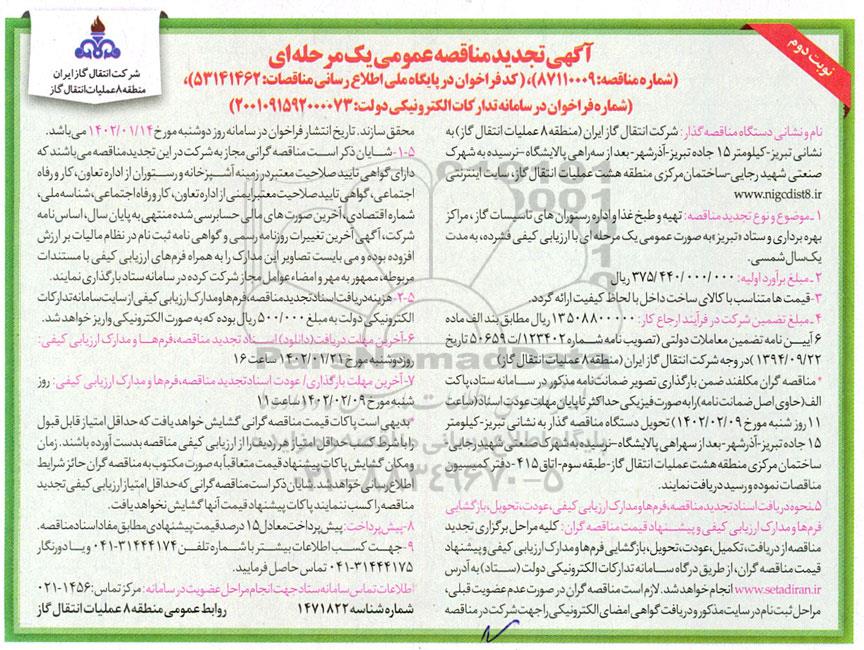 شرکت انتقال گاز ایران
منطقه ۸ عملیات انتقال گاز
نوبت دوم
آگهی تجدید مناقصه عمومی یک مرحله‌ای
(شماره مناقصه: ۸۷۱۱۰۰۰۹)، (کد فراخوان در پایگاه ملی اطلاع رسانی مناقصات: ۵۳۱۴۱۴۶۲)،
(شماره فراخوان در سامانه تدارکات الکترونیکی دولت: ۲۰۰۱۰۹۱۵۹۲۰۰۰۰۷۳)
نام و نشانی دستگاه مناقصه گذار: شرکت انتقال گاز ایران (منطقه ۸ عملیات انتقال گاز) به
نشانی تبریز-کیلومتر ۱۵ جاده تبریز-آذرشهر-بعد از سه‌راهی پالایشگاه-نرسیده به شهرک
صنعتی شهید رجایی-ساختمان مرکزی منطقه هشت عملیات انتقال گاز، سایت اینترنتی
www.nigcdist8.ir
۱-موضوع و نوع تجدید مناقصه: تهیه و طبخ غذا و اداره رستوران های تاسیسات گاز، مراکز
بهره برداری و ستاد «تبریز» به صورت عمومی یک مرحله ای با ارزیابی کیفی فشرده، به مدت
یک سال شمسی.
۲-مبلغ برآورد اولیه: ۳۷۵/۴۴۰/۰۰۰/۰۰۰ ریال
۳-قیمت ها متناسب با کالای ساخت داخل با لحاظ کیفیت ارائه گردد.
۴-مبلغ تضمین شرکت در فرآیند ارجاع کار: ۱۳۵۰۸۸۰۰۰۰۰ ریال مطابق بند الف ماده
۶ آیین نامه تضمین معاملات دولتی (تصویب نامه شماره ۱۲۳۴۰۲/ت ۵۰۶۵۹ تاریخ
۱۳۹۴/۰۹/۲۲) در وجه شرکت انتقال گاز ایران (منطقه ۸ عملیات انتقال گاز)
*مناقصه گران مکلفند ضمن بارگذاری تصویر ضمانت‌نامه مذکور در سامانه ستاد، پاکت
الف (حاوی اصل ضمانت نامه) را به صورت فیزیکی حداکثر تا پایان مهلت عودت اسناد (ساعت
۱۱ روز شنبه مورخ ۱۴۰۲/۰۲/۰۹) تحویل دستگاه مناقصه گذار به نشانی تبریز-کیلومتر
۱۵ جاده تبریز-آذرشهر-بعد از سه‌راهی پالایشگاه-نرسیده به شهرک صنعتی شهید رجایی-
ساختمان مرکزی منطقه هشت عملیات انتقال گاز-طبقه سوم-اتاق ۴۱۵-دفتر کمیسیون
مناقصات نموده و رسید دریافت نمایند.
۵-نحوه دریافت اسناد تجدید مناقصه، فرم‌ها و مدارک ارزیابی کیفی، عودت، تحویل، بازگشایی
فرم‌ها و مدارک ارزیابی کیفی و پیشنهاد قیمت مناقصه گران: کلیه مراحل برگزاری تجدید
مناقصه از دریافت، تکمیل، عودت، تحویل، بازگشایی فرم‌ها و مدارک ارزیابی کیفی و پیشنهاد
قیمت مناقصه گران، از طریق درگاه سامانه تدارکات الکترونیکی دولت (ستاد) به آدرس
www.setadiran.ir انجام خواهد شد. لازم است مناقصه گران در صورت عدم عضویت قبلی،
مراحل ثبت نام در سایت مذکور و دریافت گواهی امضای الکترونیکی را جهت شرکت در مناقصه
محقق سازند. تاریخ انتشار فراخوان در سامانه روز دوشنبه مورخ ۱۴۰۲/۰۱/۱۴ می‌باشد.
۵-۱-شایان ذکر است مناقصه گرانی مجاز به شرکت در این تجدید مناقصه می باشند که
دارای گواهی تایید صلاحیت معتبر در زمینه آشپزخانه و رستوران از اداره تعاون، کار و رفاه
اجتماعی، گواهی تایید صلاحیت معتبر ایمنی از اداره تعاون، کار و رفاه اجتماعی، شناسه ملی،
شماره اقتصادی، آخرین صورت های مالی حسابرسی شده منتهی به پایان سال، اساس نامه
شرکت، آگهی آخرین تغییرات روزنامه رسمی و گواهی نامه ثبت نام در نظام مالیات بر ارزش
افزوده بوده و می بایست تصاویر این مدارک را به همراه فرم‌های ارزیابی کیفی با مستندات
مربوطه، ممهور به مهر و امضاء عوامل مجاز شرکت کرده در سامانه ستاد بارگذاری نمایند.
۵-۲-هزینه دریافت اسناد تجدید مناقصه، فرم‌ها و مدارک ارزیابی کیفی از سایت سامانه تدارکات
الکترونیکی دولت به مبلغ ۵۰۰/۰۰۰ ریال بوده که به صورت الکترونیکی واریز خواهد شد.
۶-آخرین مهلت دریافت (دانلود) اسناد تجدید مناقصه، فرم‌ها و مدارک ارزیابی کیفی:
روز دوشنبه مورخ ۱۴۰۲/۰۱/۲۱ ساعت ۱۶
۷-آخرین مهلت بارگذاری/عودت اسناد تجدید مناقصه، فرم‌ها و مدارک ارزیابی کیفی: روز
شنبه مورخ ۱۴۰۲/۰۲/۰۹ ساعت ۱۱
*بدیهی است پاکات قیمت مناقصه گرانی گشایش خواهد یافت که حداقل امتیاز قابل قبول
را با شرط کسب حداقل امتیاز هر ردیف را از ارزیابی کیفی مناقصه بدست آورده باشند. زمان
و مکان گشایش پاکات پیشنهاد قیمت متعاقباً به صورت مکتوب به مناقصه گران حائز شرایط
اطلاع رسانی خواهد شد. شایان ذکر است مناقصه گرانی که حداقل امتیاز ارزیابی کیفی تجدید
مناقصه را کسب ننمایند پاکات پیشنهاد قیمت آنها گشایش نخواهد یافت.
۸-پیش پرداخت: پیش پرداخت معادل ۱۵ درصد قیمت پیشنهادی مطابق مفاد اسناد مناقصه.
۹-جهت کسب اطلاعات بیشتر با شماره تلفن ۳۱۴۴۴۱۷۴-۰۴۱ و یا دورنگار
۳۱۴۴۴۱۷۵-۰۴۱ تماس حاصل فرمایید.
*اطلاعات تماس سامانه ستاد جهت انجام مراحل عضویت در سامانه: مرکز تماس: ۱۴۵۶-۰۲۱
شماره شناسه ۱۴۷۱۸۲۲
روابط عمومی منطقه ۸ عملیات انتقال گاز